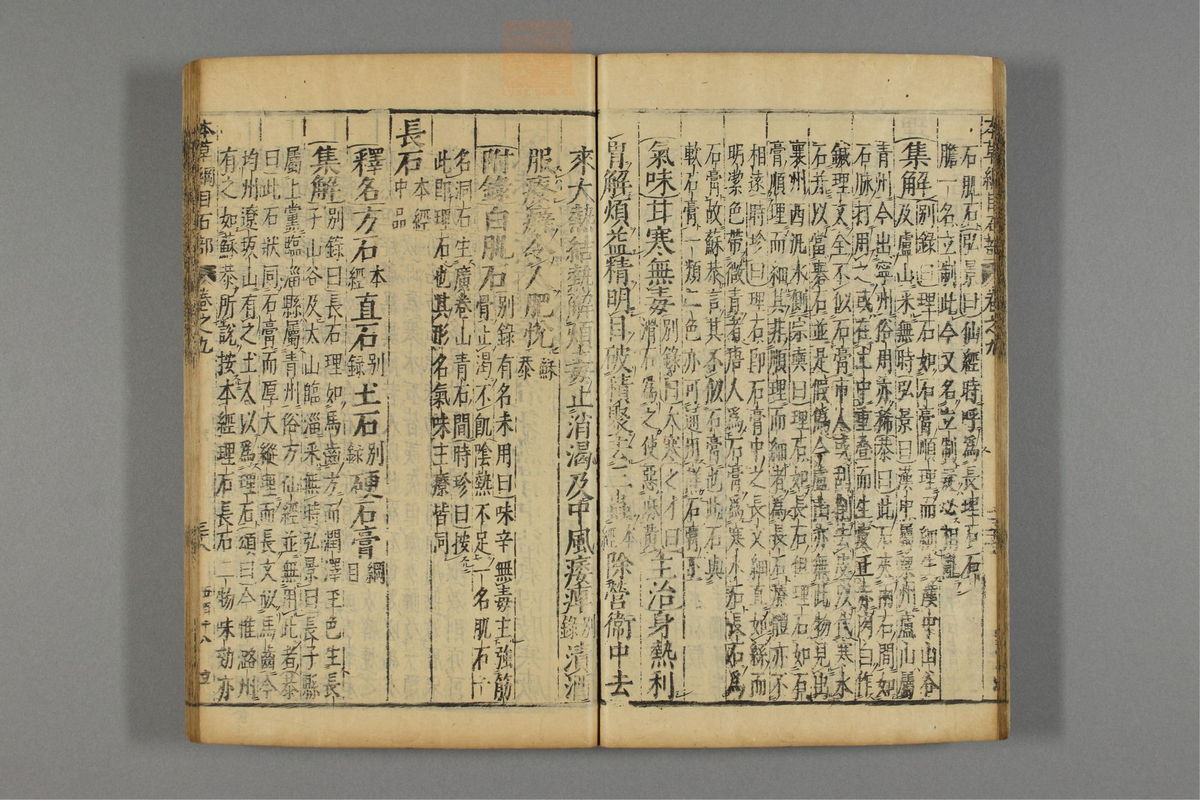 石肌石弘景曰仙經時呼爲長理石石
膽一名立制此今又名立制疑必相亂
集解別錄曰理石如石膏順理而細生漢中山谷
及盧山采無時弘景曰漢中屬梁州盧山屬
青州今出寧州俗用亦稀恭曰此石夾兩石間如
石脉打用之或在土中重疊而生皮黃赤肉白作
鍼理文全不似石膏市人或刮削去皮以代寒水
石并以當礜石並是假僞今盧山亦無此物見出
襄州西汎水側宗奭曰理石如長石但理石如石
膏順理而細其非順理而細者爲長石療體亦不
相遠時珍曰理石即石膏中之長文細直如絲而
明潔色帶微青者唐人爲石膏爲寒水石長石爲
石膏故蘇恭言其不似石膏也此石與
軟石膏一類二色亦可通用詳石膏下
氣味甘寒無毒別錄曰大寒之才曰
滑石爲之使惡麻黃主治身熱利
胃解煩益精明目破積聚去三蟲本經除營衛中去
來大熱結熱解煩毒止消渴及中風痿痺別錄漬酒
服療癖令人肥悅蘇恭
附錄白肌石別錄有名未用曰味辛無毒主強筋
骨止渴不飢陰熱不足一名肌石一
名洞石生廣卷山青石間時珍曰按
此即理石也其形名氣味主療皆同
長石本經中品
釋名方石本經直石別錄土石別錄硬石膏綱目
集解別錄曰長石理如馬齒方而潤澤玉色生長
子山谷及太山臨淄采無時弘景曰長子縣
屬上黨臨淄縣屬青州俗方仙經並無用此者恭
曰此石狀同石膏而厚大縱理而長文似馬齒今
均州遼坂山有之土人以爲理石頌曰今惟潞州
有之如蘇恭所說按本經理石長石二物味効亦
本草綱目石部
卷之九